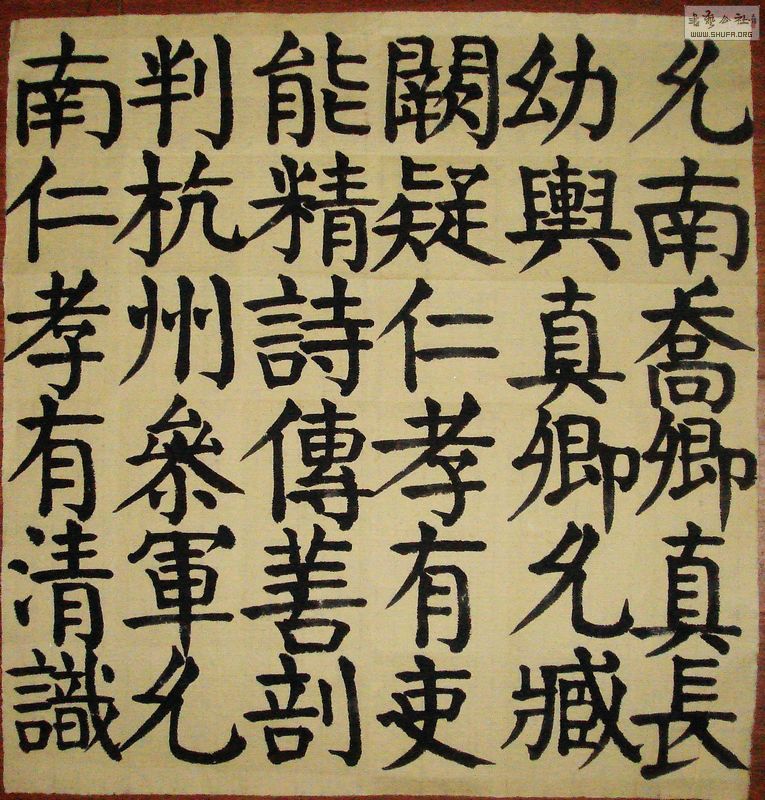 允南喬卿真長
幼輿真卿允臧
闕疑仁孝有吏
能精詩傳善剖
判杭州參軍允
南仁孝有清識
WWW.SHUFA.ORG